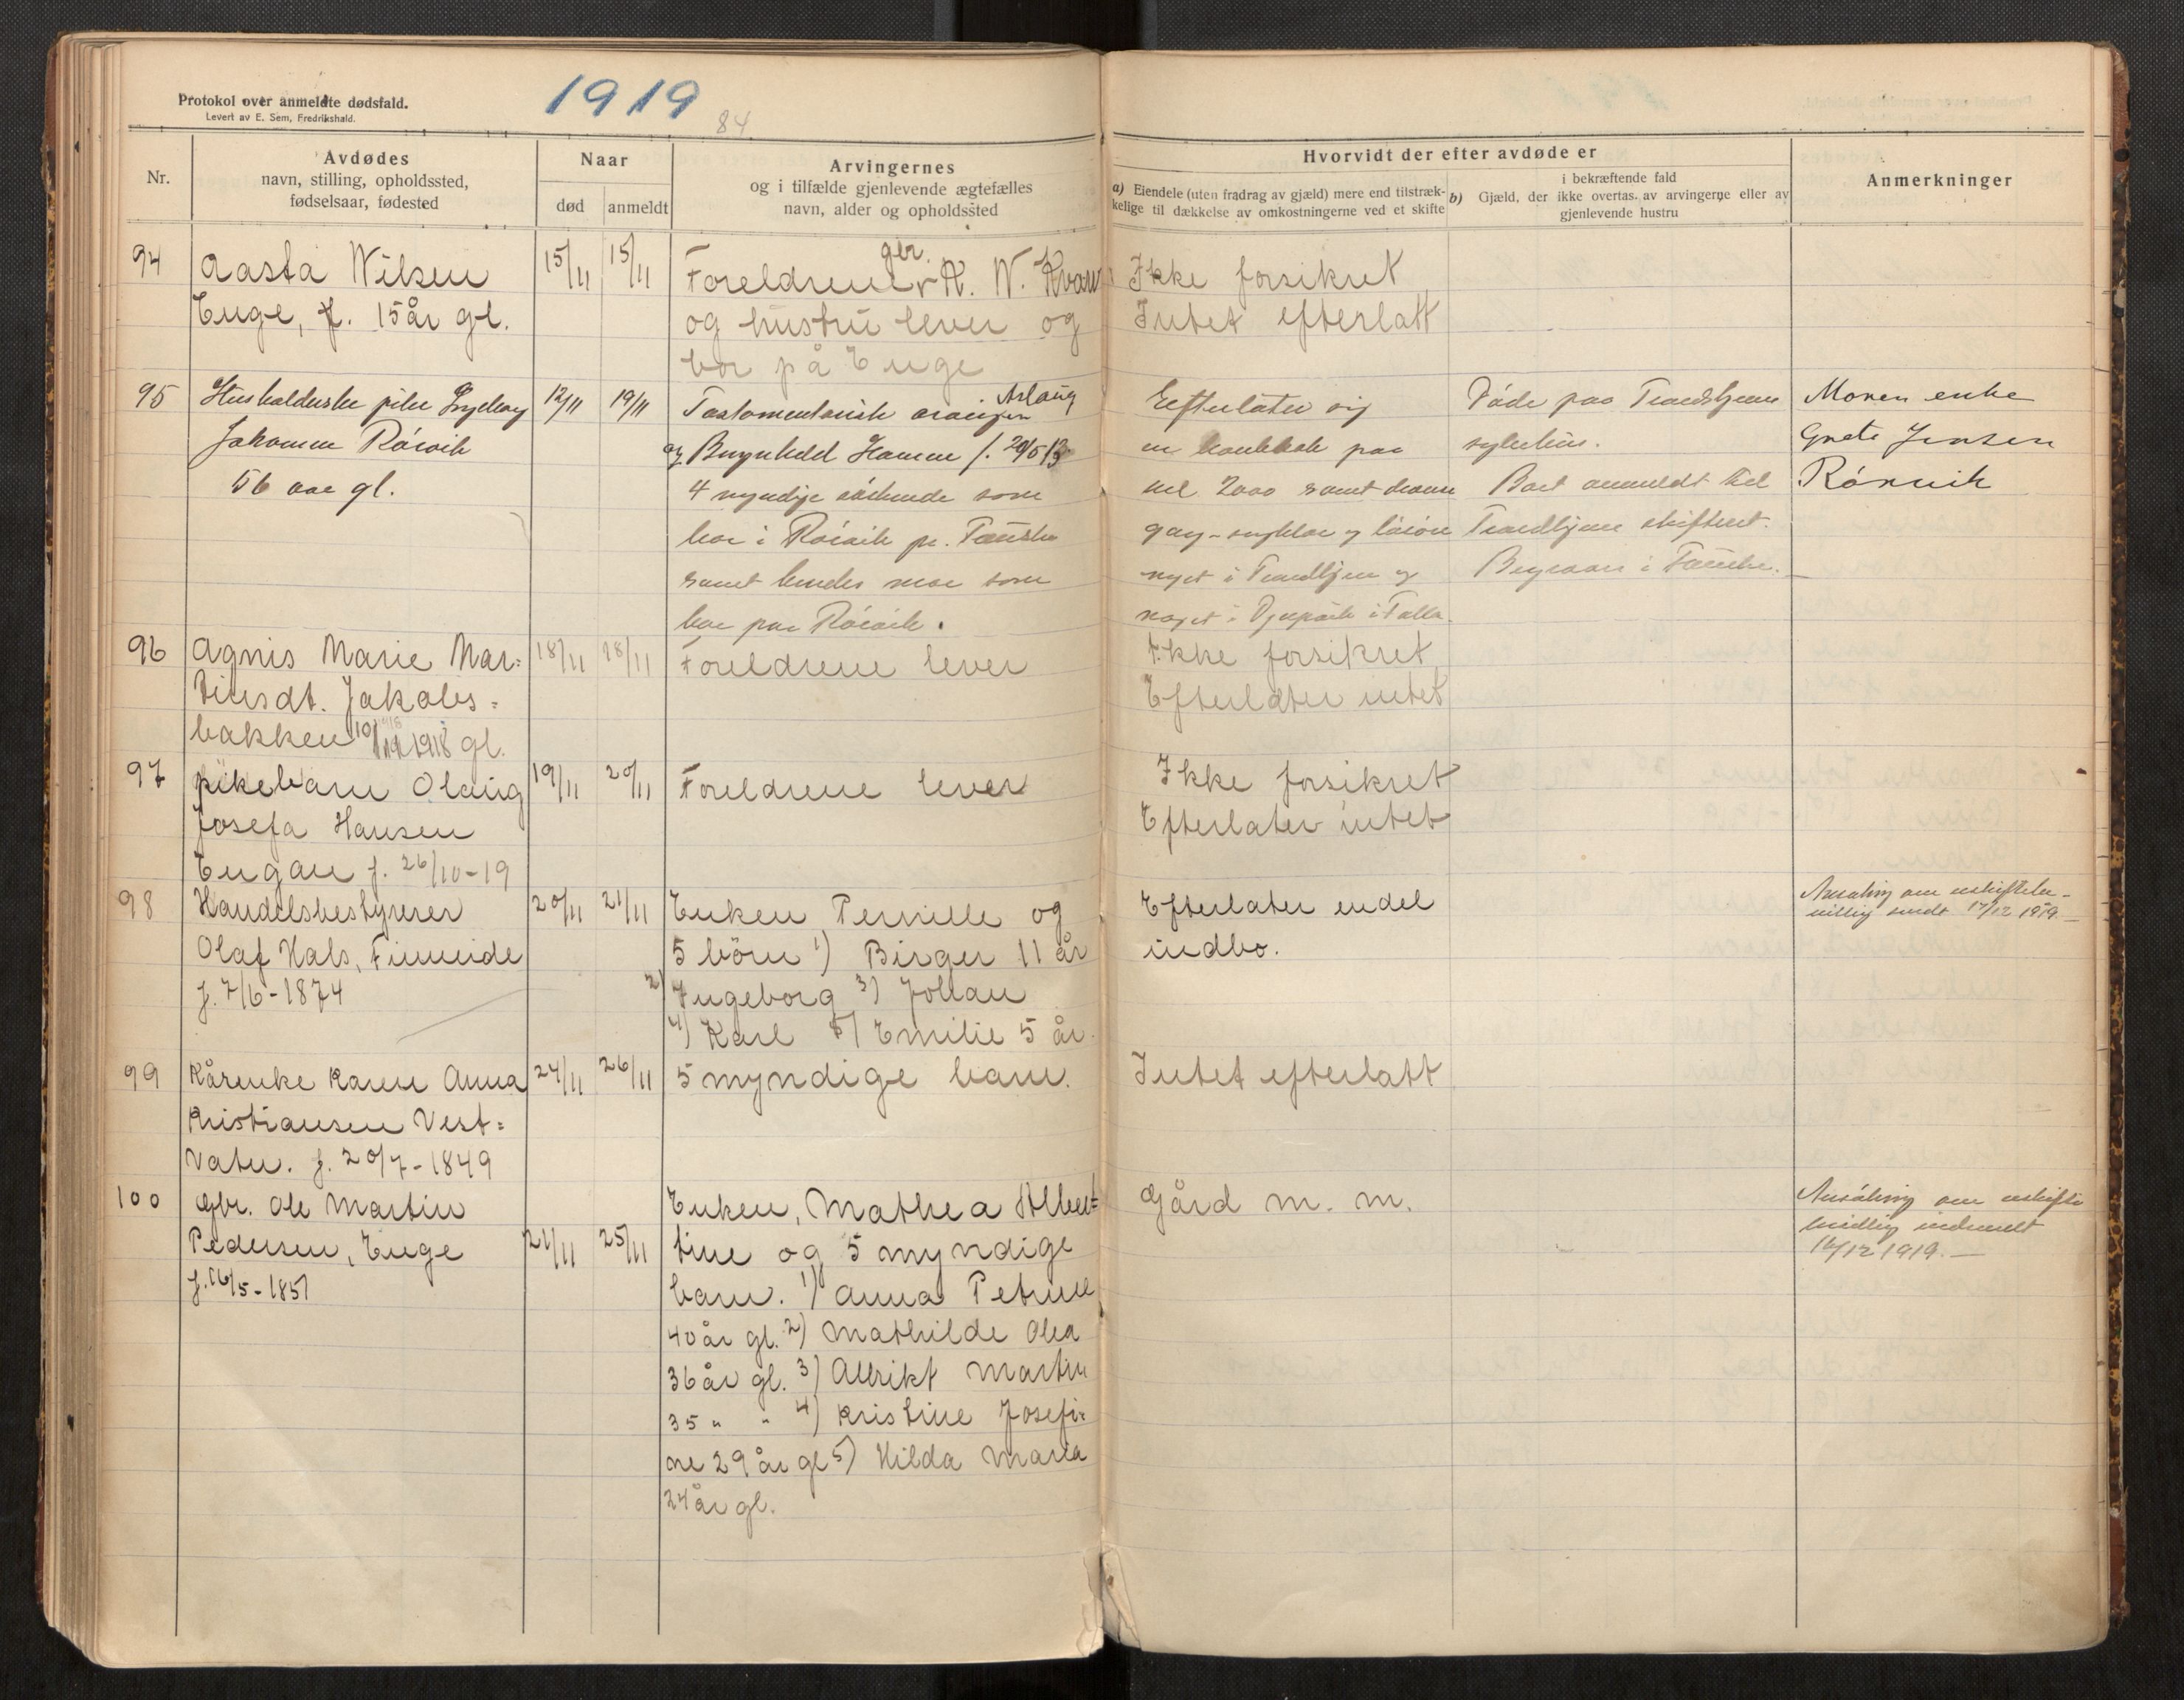 1919
84
Protokol over anmeldte dødsfald.
Levert av E. Sem, Fredrikshald.
Nr.
Avdødes
navn, stilling, opholdssted,
fødselsaar, fødested
Naar
død
anmeldt
Arvingernes
og i tilfælde gjenlevende ægtefælles
navn, alder og opholdssted
Hvorvidt der efter avdøde er
a) Eiendele (uten fradrag av gjæld) mere end tilstræk-
kelige til dækkelse av omkostningerne ved et skifte
i bekræftende fald
b) Gjæld, der ikke overtas av arvingerne eller av
gjenlevende hustru
Anmerkninger
94 Aasta Nilsen 15/11 15/11 Foreldrene gbr. A. N. Ikke forsikret
Enge, f. 15 år gl. og hustru lever og Intet efterlatt
bor på Enge
95 Husholderske pike Ingeborg 12/11 19/11 Testamentarisk arvinger Aslaug Efterlater sig Døde paa Trondhjems Moren enke
Johanne Rörvik og Brynhild Hamne f. 20/5 13 en bankbok paa sykehus. Grete Jensen
56 aar gl. 4 myndige söskende som vel 2000 samt Boet anmeldt til Rörvik
bor i Rörvik pr. gang- og Trondhjem skifteret.
samt hendes mor som noget i Trondhjem og Begraves i
bor paa Rörvik. noget i
96 Agnis Marie Mar= 18/11 18/11 Foreldrene lever Ikke forsikret
tinsdt. Jakobs= Efterlater intet
bakken 1918 gl.
97 pikebarn Olaug 19/11 20/11 Foreldrene lever Ikke forsikret
Josefa Hansen Efterlater intet
Engan f. 26/10-19
98 Handelsbestyrerer 20/11 21/11 Enken Pernille og Efterlater endel Ansøkning om uskiftebe-
Olaf Hals, Finneide 5 börn 1) Birger 11 år indbo. villig sendt 17/12 1919.
f. 7/6-1874 2) Ingeborg 3) Jollau
4) Karl 5) Emilie 5 år.
99 Kårenke Karen Anna 24/11 26/11 5 myndige barn. Intet efterlatt
Kristiansen Vest=
vatn. f. 20/7-1849
100 Gbr. Ole Martin Enken, Mathea Alber= Gård m. m. Ansökning om uskifte
Pedersen, Enge 21/11 25/11 tine og 5 myndige bevillig indsendt
f. 16/5-1851 barn. 1) Anna Petrine 16/12 1919.
40 år gl. 2) Mathilde Olea
36 år gl. 3) Allrikt Martin
35 " " 4) Kristine Josefi=
ne 29 år gl 5) Hilda Maria
24 år gl.